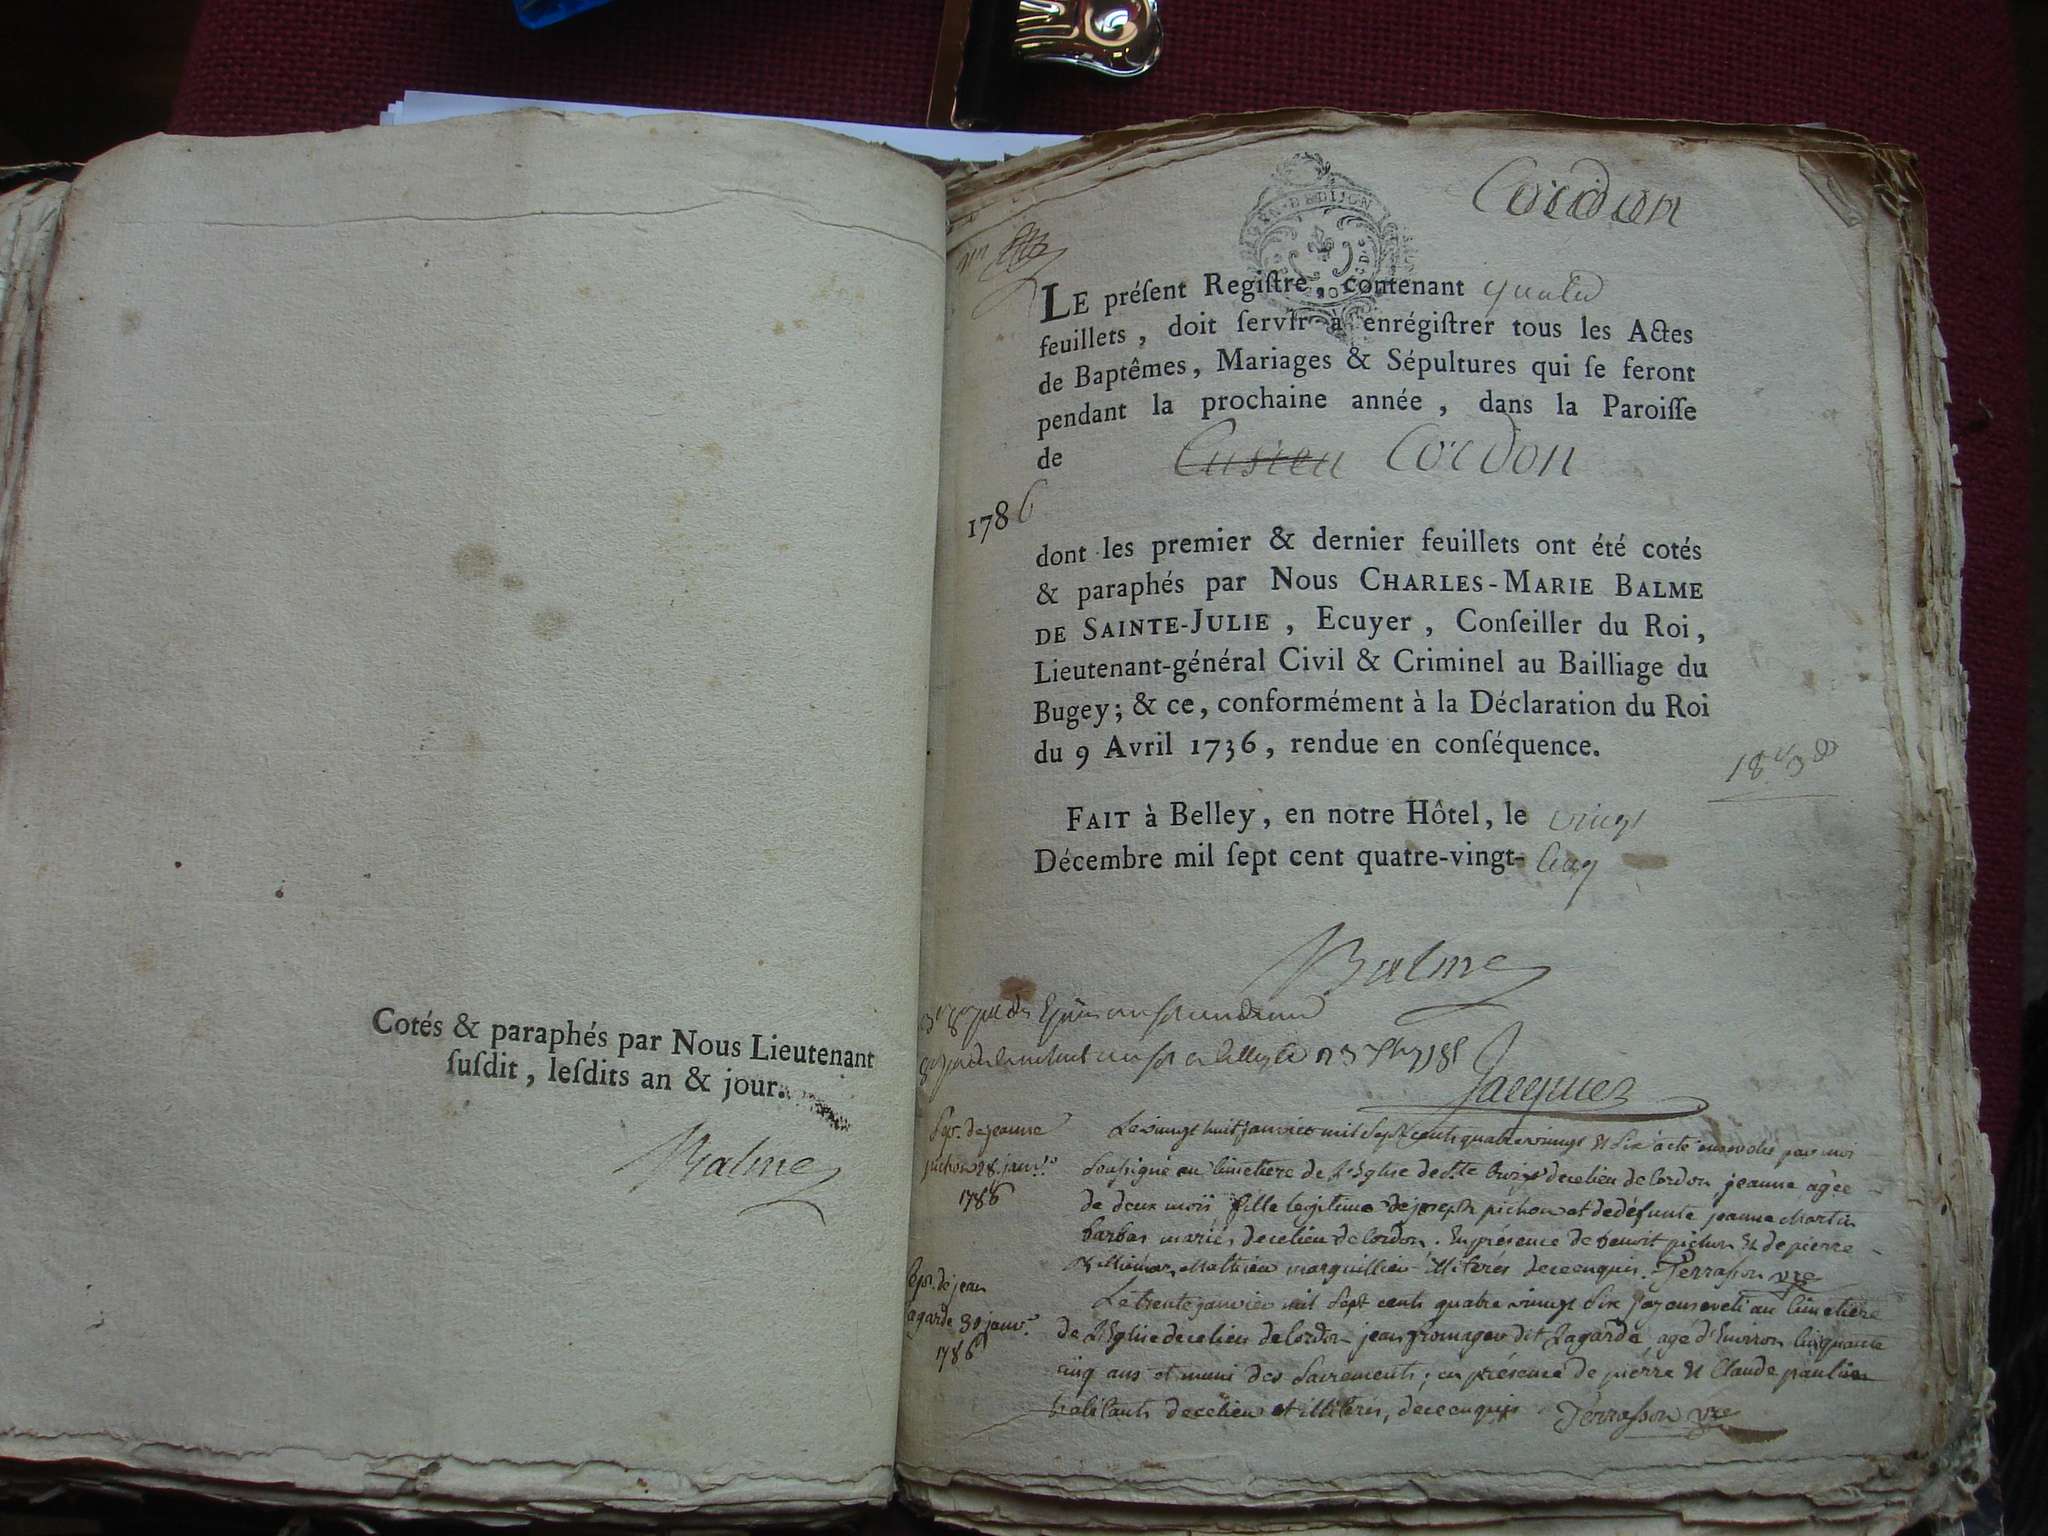 Cotés & paraphés par Nous Lieutenant
ſuſdit, leſdits an & jour.
Balme
Cordon
GEN. DE DIJON
LE préſent Regiſtre, contenant quatre
feuillets, doit ſervir à enrégiſtrer tous les Actes
de Baptêmes, Mariages & Sépultures qui ſe feront
pendant la prochaine année, dans la Paroiſſe
de Cusieu Cordon
1786
dont les premier & dernier feuillets ont été cotés
& paraphés par Nous CHARLES-MARIE BALME
DE SAINTE-JULIE, Ecuyer, Conſeiller du Roi,
Lieutenant-général Civil & Criminel au Bailliage du
Bugey; & ce, conformément à la Déclaration du Roi
du 9 Avril 1736, rendue en conſéquence.
FAIT à Belley, en notre Hôtel, le vingt
Décembre mil ſept cent quatre-vingt-cinq
Balme
Jacques
Sep. de jeanne
pichon 28. janv.
1786
Le vingt huit janvier mil sept cents quatre vingt et six a été ensevelie par moi
soussigné au cimetiere de l'Eglise de ce lieu de Cordon jeanne agée
de deux mois fille legitime de joseph pichon et de défunte jeanne Martin
barbas mariés de ce lieu de Cordon. En présence de benoit pichon et de pierre
Mathieu marguillier illiterés de ce enquis. Terrasson vre
Sep. de jean
lagarde 30 janv.
1786
Le trente janvier mil sept cents quatre vingt six j'ay enseveli au cimetiere
de l'Eglise de ce lieu de Cordon jean fromager dit Lagarde agé d'environ cinquante
cinq ans et muni des sacrements; en présence de pierre et Claude paulin
habitants de ce lieu et illiterés, de ce enquis Terrasson vre